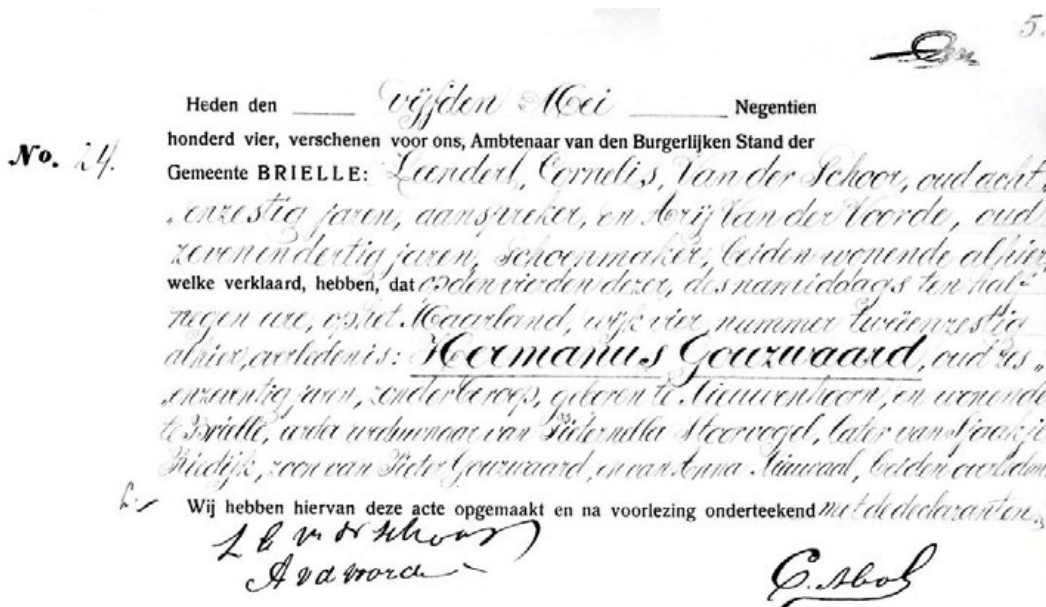 5.
Heden den vijfden Mei Negentien
honderd vier, verschenen voor ons, Ambtenaar van den Burgerlijken Stand der
No. 24.
Gemeente BRIELLE: Leendert, Cornelis, Van der Schoor, oud acht„
„enzestig jaren, aanspreker, en Arij Van der Voorde, oud
zevenendertig jaren, schoenmaker, beiden wonende alhier,
welke verklaard, hebben, dat op den vierden dezer, des namiddags ten half
negen ure, op het Maarland, wijk vier nummer tweeenzestig
alhier, overleden is: Hermanus Gouzwaard, oud zes„
„enzeventig jaren, zonder beroep, geboren te Nieuwenhoorn, en wonende
te Brielle, weduwnaar van Pieternella Stoorvogel, later van
Riedijk, zoon van Pieter Gouzwaard, en van Anna Nieuwaal, beiden overleden
Wij hebben hiervan deze acte opgemaakt en na voorlezing onderteekend met de declaranten.
L C v der Schoor
A v d voorde